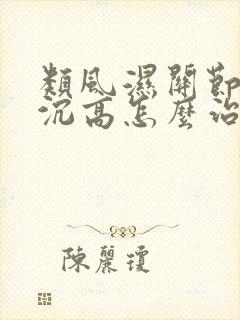 類風濕關節
沉高怎麼治
陳麗瓊